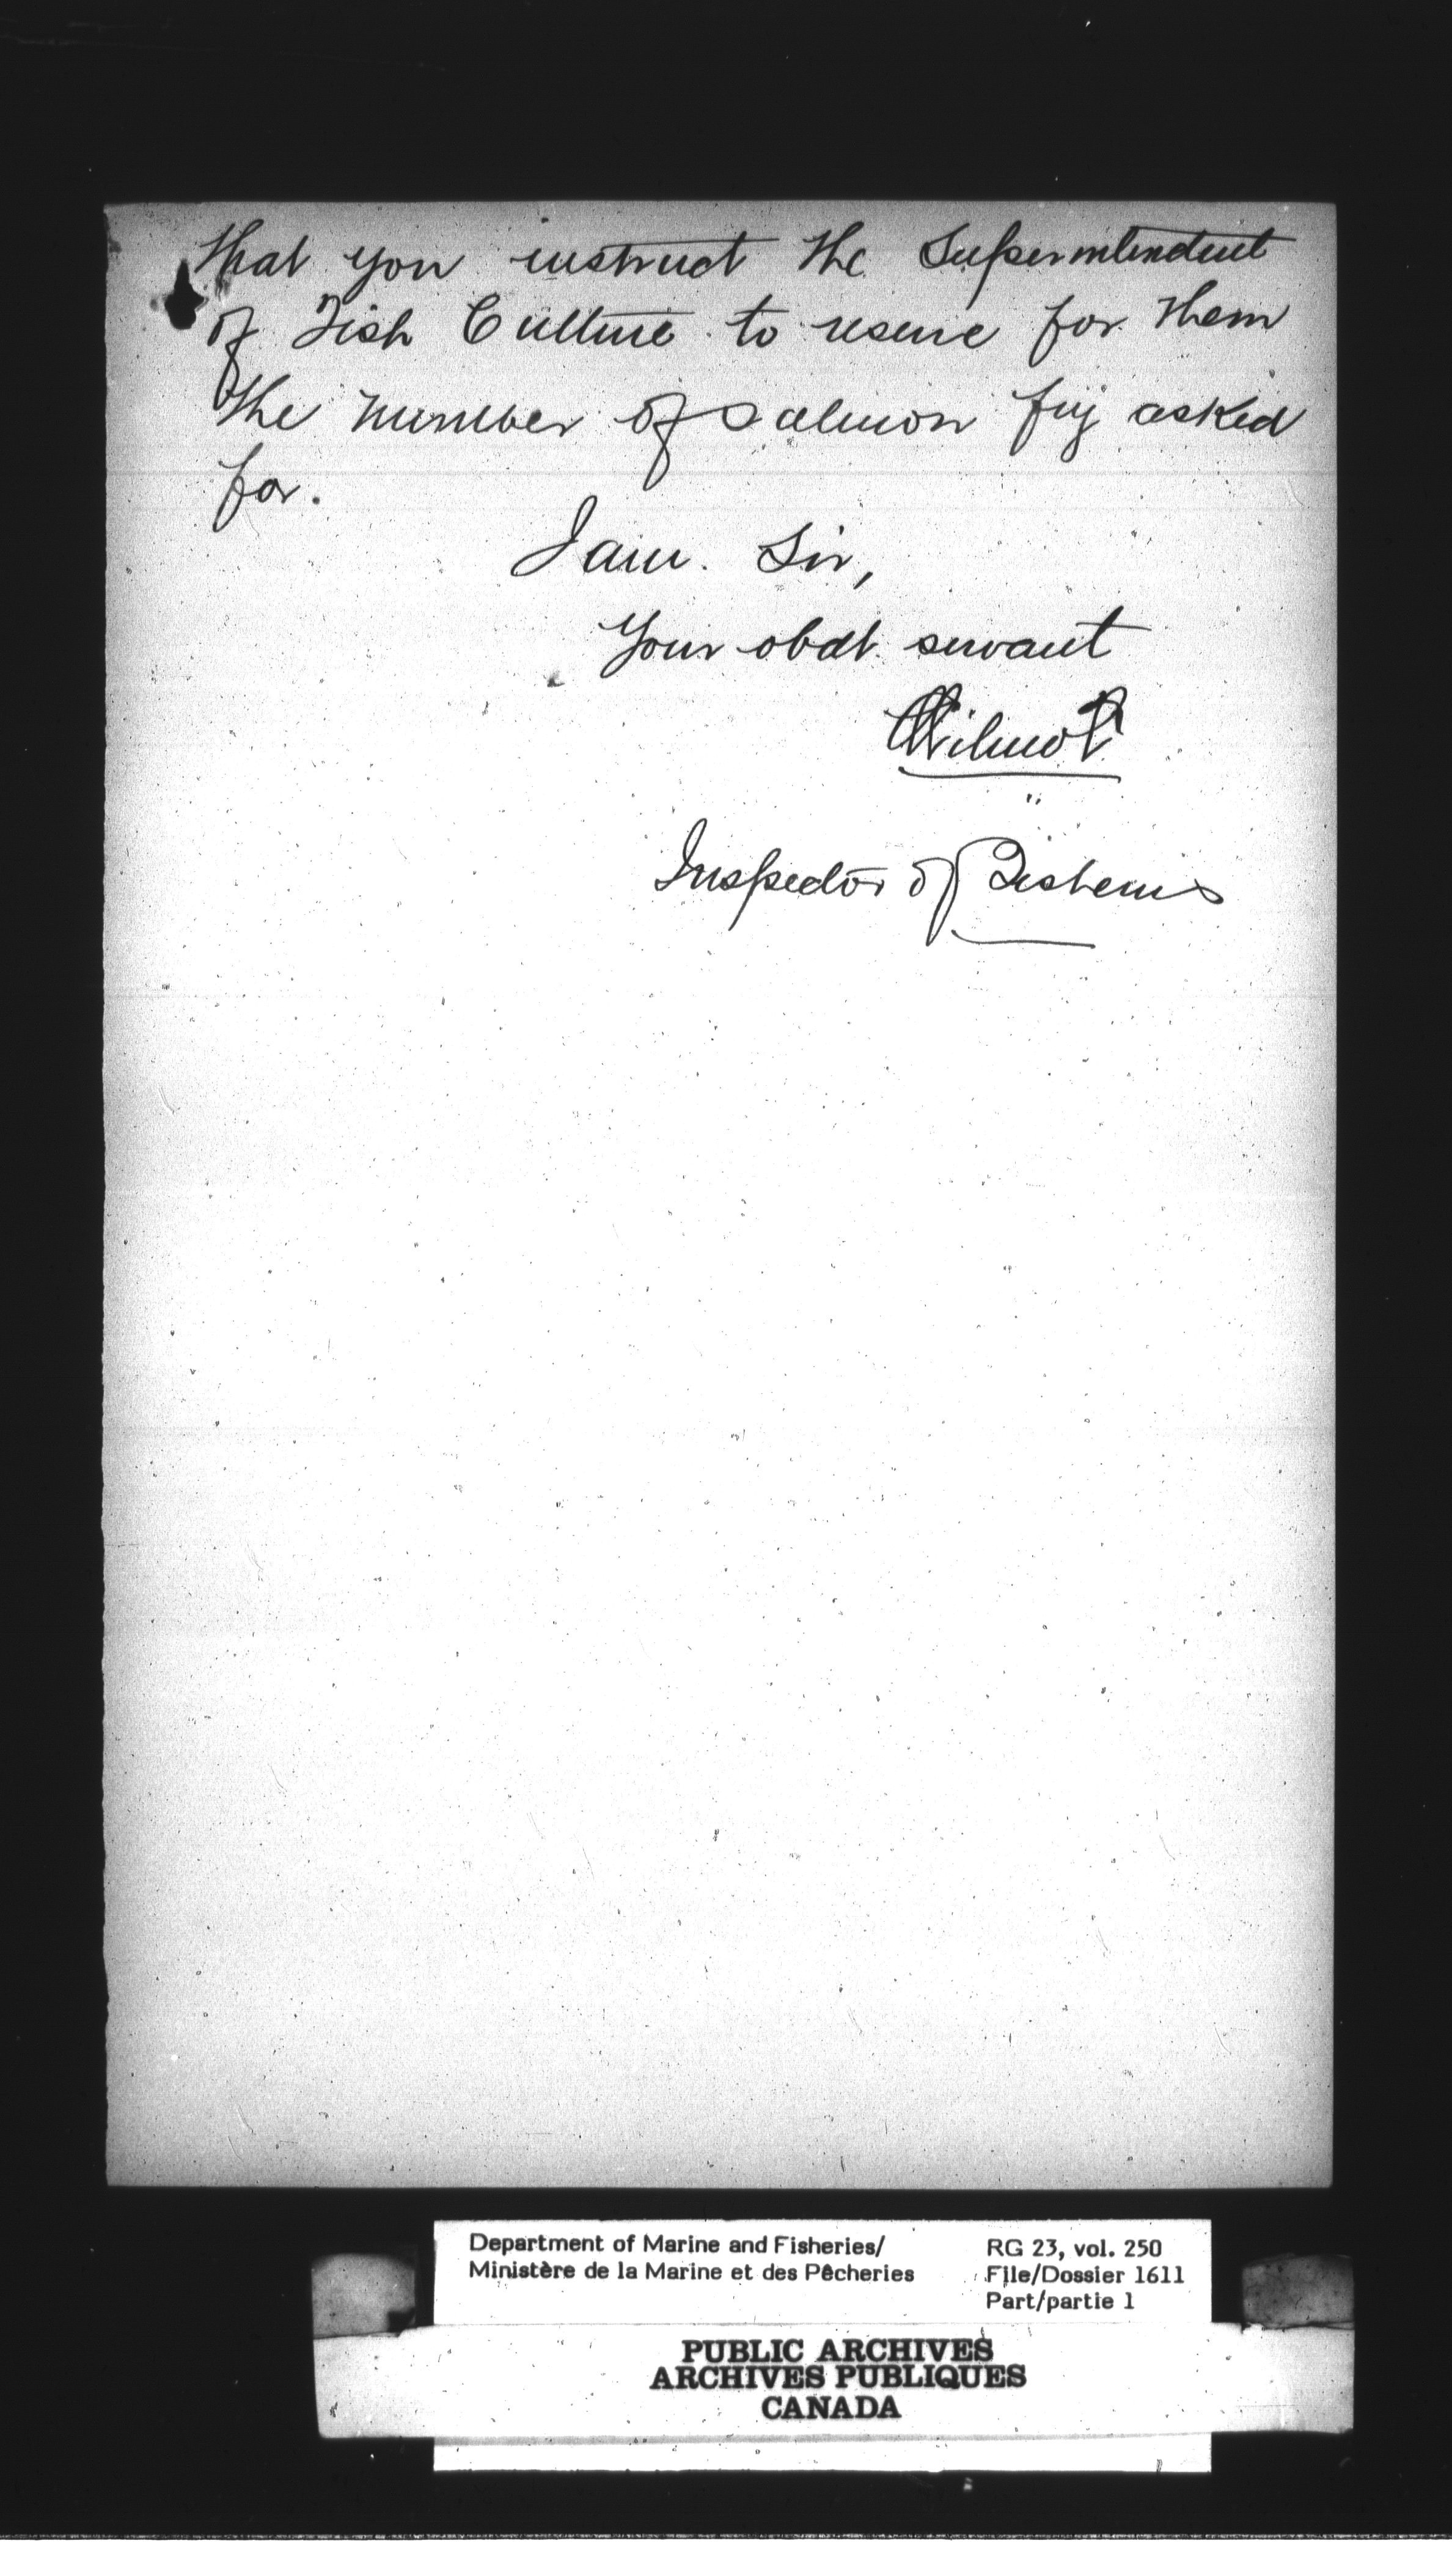 that you instruct the Superintendent
of Fish Culture to reserve for them
the number of salmon fry asked
for.
I am. Sir,
Your obdt servant
Wilmot
Inspector of Fisheries
Department of Marine and Fisheries/
Ministère de la Marine et des Pêcheries
RG 23, vol. 250
File/Dossier 1611
Part/partie 1
PUBLIC ARCHIVES
ARCHIVES PUBLIQUES
CANADA